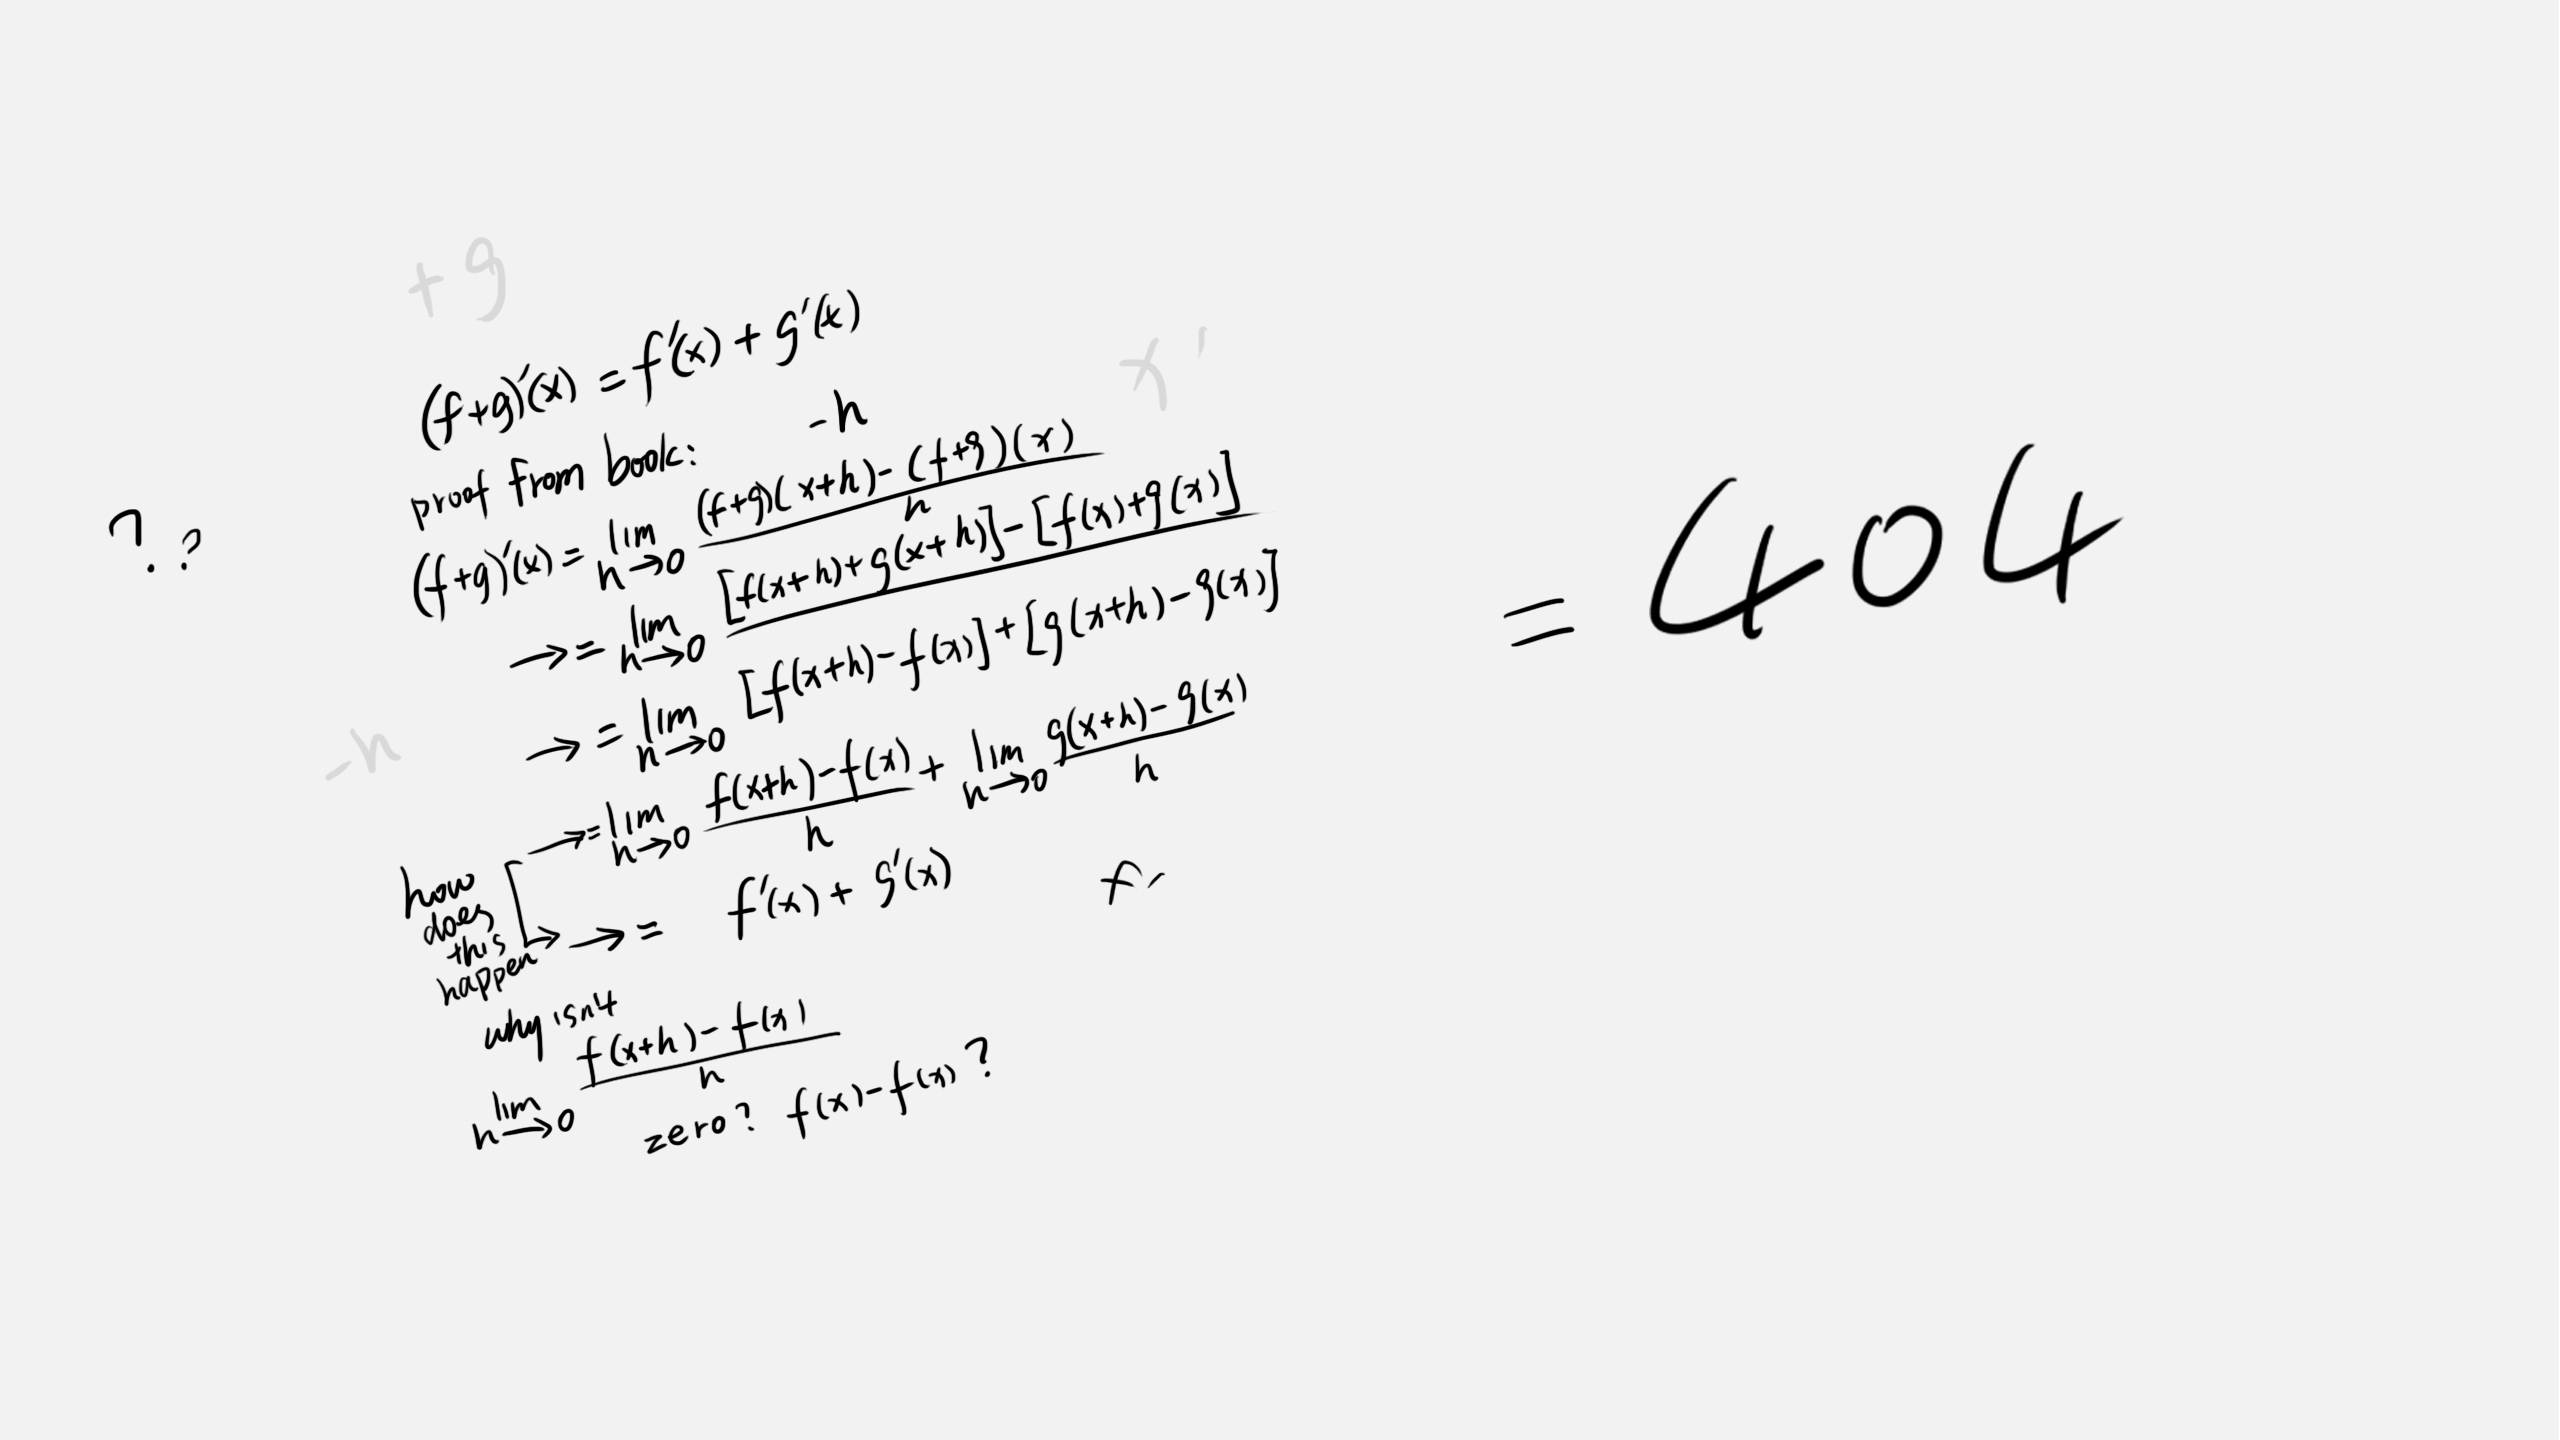 + g
(f+g)'(x) = f'(x) + g'(x)
x '
-h
proof from book:
(f+g)'(x) = lim h→0 (f+g)(x+h)-(f+g)(x) / h
? ?
→ = lim h→0 [f(x+h)+g(x+h)]-[f(x)+g(x)]
= 404
→ = lim h→0 [f(x+h)-f(x)]+[g(x+h)-g(x)]
-h
→ = lim h→0 f(x+h)-f(x) / h + lim h→0 g(x+h)-g(x) / h
how
does
this
happen
→ = f'(x) + g'(x)
f '
why isn't
lim h→0 f(x+h)-f(x) / h
zero? f(x)-f(x)?